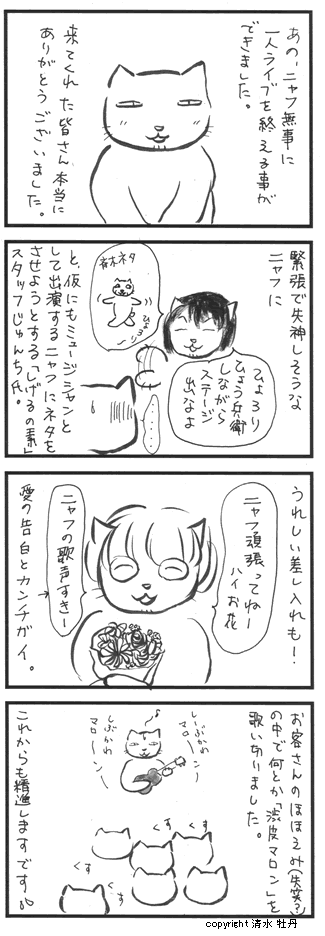 あの、ニャフ無事に
一人ライブを終える事が
できました。
来てくれた皆さん本当に
ありがとうございました。
緊張で失神しそうな
ニャフに
ひょろり
ひょう兵衛
しながら
ステージ
出なよ
斎木ネタ
ひょ
ろり
と、仮にもミュージシャンと
して出演するニャフにネタを
させようとする「しげるの素」
スタッフじゅんち氏。
うれしい差し入れも!
ニャフ頑張ってねー
ハイお花
ニャフの歌声すきー
愛の告白とカンチガイ。
お客さんのほほえみ(失笑?)
の中で何とか「渋皮マロン」を
歌い切りました。
しーぶかわ
マローン
しぶかわ
マローン
くす
くす
くす
これからも精進しますです。
copyright 清水 牡丹